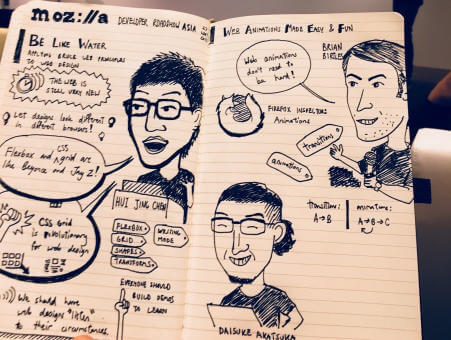 moz://a
DEVELOPER ROADSHOW ASIA
BE LIKE WATER
APPLYING BRUCE LEE PRINCIPLES
TO WEB DESIGN
THE WEB IS
STILL VERY NEW
Let designs look different
in different browsers!
Flexbox and CSS grid are
like Beyonce and Jay Z!
HUI JING CHEN
CSS Grid
is revolutionary
for web design
FLEXBOX
GRID
SHAPES
TRANSFORMS
WRITING
MODE
We should have
web designs "listen"
to their circumstances.
EVERYONE SHOULD
BUILD DEMOS
TO LEARN
WEB ANIMATIONS MADE EASY & FUN
Web animations
don't need to
be hard!
BRIAN
BIRTLES
FIREFOX INSPECTOR:
Animations
transitions
animations
transitions:
A→B
animations:
A→B→C
DAISUKE AKATSUKA